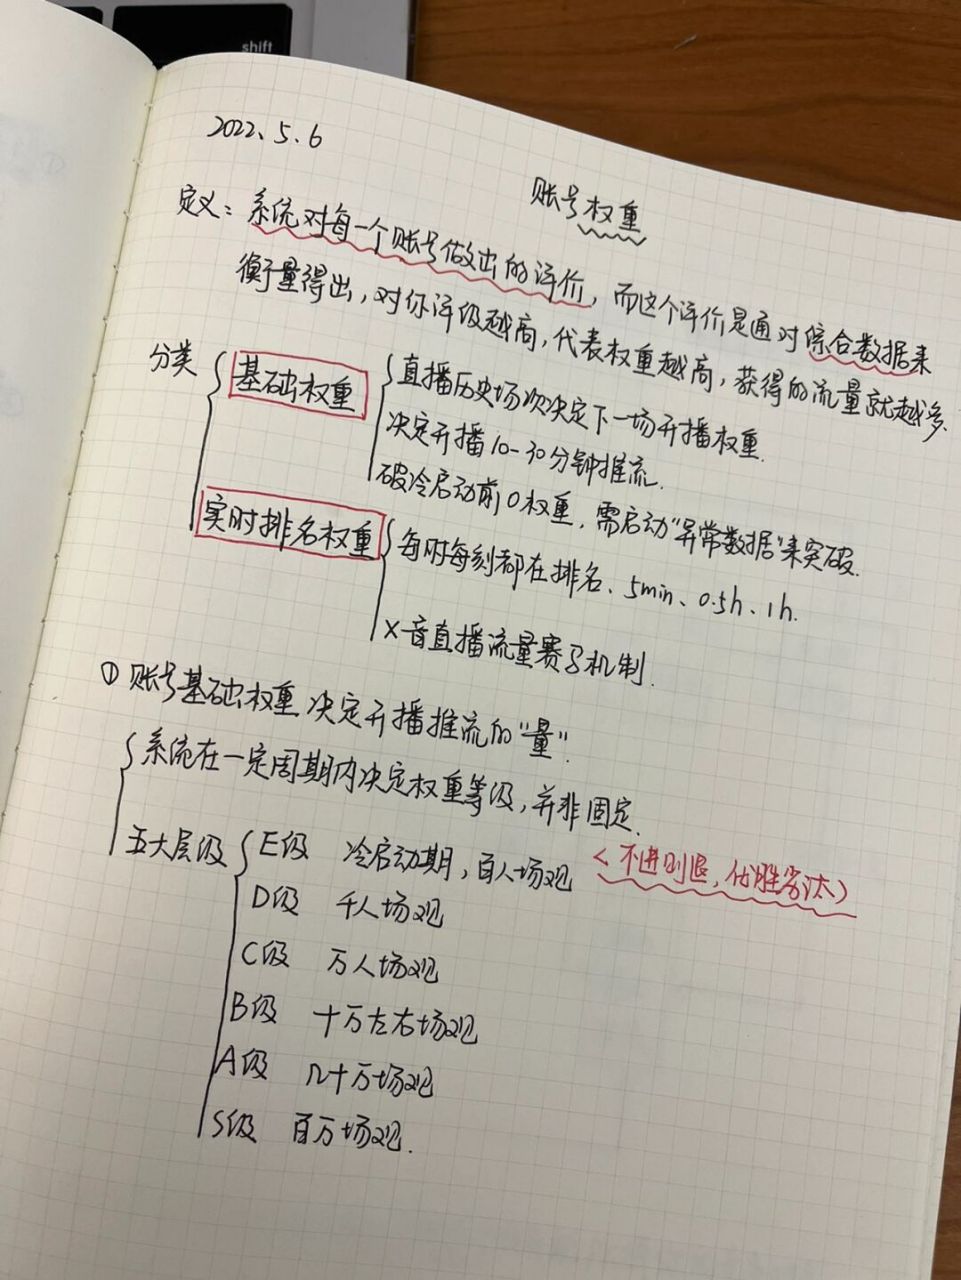 shift
2022.5.6
账号权重
定义：系统对每一个账号做出的评价，而这个评价是通对综合数据来
衡量得出，对你评级越高，代表权重越高，获得的流量就越多.
分类
基础权重
直播历史场次决定下一场开播权重.
决定开播10-30分钟推流.
破冷启动前0权重，需启动"异常数据"来突破.
实时排名权重
每时每刻都在排名、5min、0.5h、1h.
X音直播流量赛马机制.
① 账号基础权重决定开播推流的"量".
系统在一定周期内决定权重等级，并非固定.
五大层级
E级 冷启动期，百人场观 <不进则退，优胜劣汰)
D级 千人场观
C级 万人场观
B级 十万左右场观
A级 几十万场观
S级 百万场观.